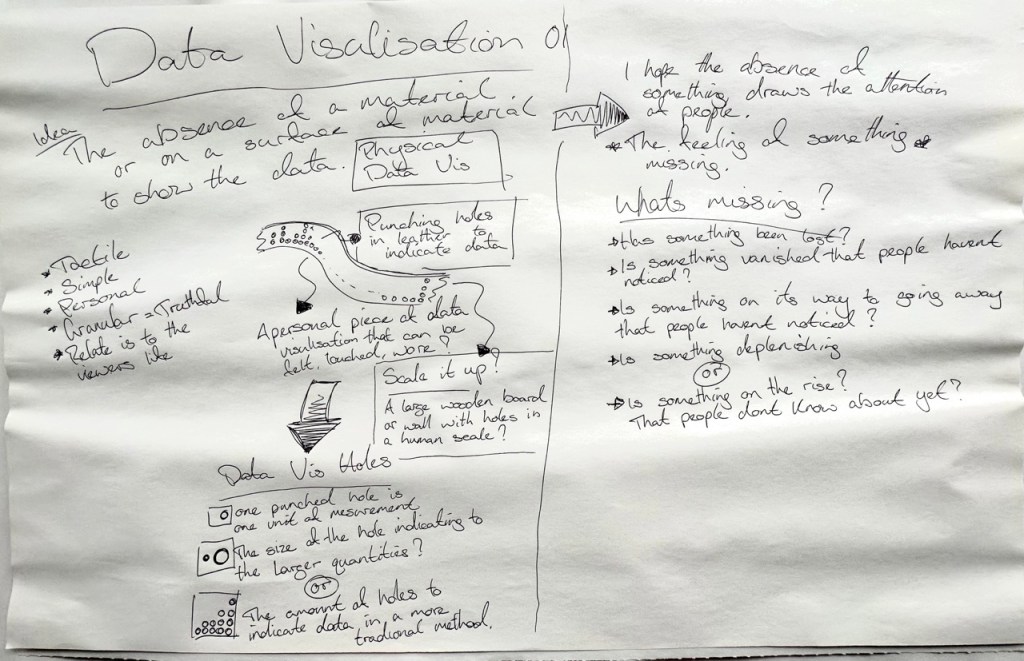 Data Visulisation 01
Idea
The absence of a material
or on a surface of material
to show the data.
Physical
Data Vis
Punching holes
in leather to
indicate data
Tactile
Simple
Personal
Granular = Truthful
Relate is to the
viewers like
A personal piece of data
visulisation that can be
felt, touched, wore?
Scale it up?
A large wooden board
or wall with holes in
a human scale?
Data Vis Holes
one punched hole is
one unit of mesurement
The size of the hole indicating to
the Larger quantities?
OR
The amount of holes to
indicate data in a more
tradional method.
I hope the absence of
something draws the attention
of people.
* The feeling of something *
missing.
Whats missing?
Has something been lost?
Is something vanished that people havent
noticed?
Is something on its way to going away
that people havent noticed?
Is something deplenishing
OR
Is something on the rise?
That people dont know about yet?